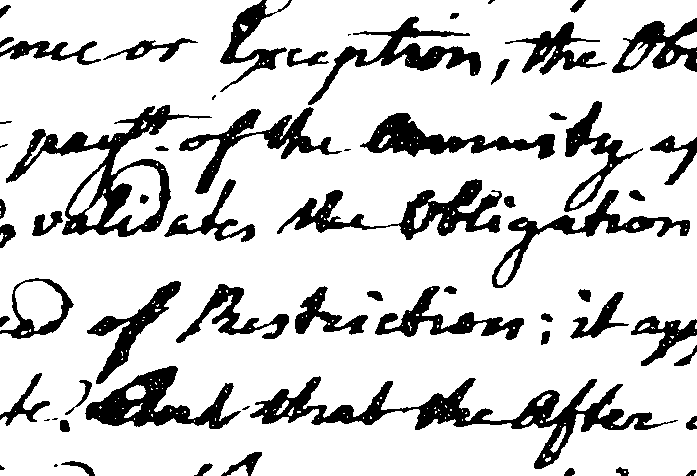 or Exception, the
payt. of the Annuity
validates the Obligation
of Restriction; it
And that the After